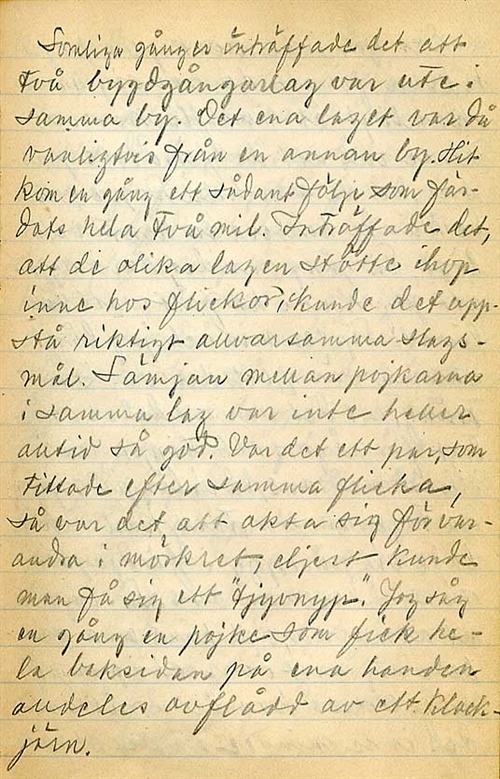 Somliga gånger inträffade det att
två bygdgångarlag var ute i
samma by. Det ena laget var då
vanligtvis från en annan by. Hit
kom en gång ett sådant följe som fär-
dats hela två mil. Inträffade det,
att de olika lagen stötte ihop
inne hos flickor, kunde det upp-
stå riktigt allvarsamma slags-
mål. Sämjan mellan pojkarna
i samma lag var inte heller
alltid så god. Var det ett par, som
tittade efter samma flicka,
så var det att akta sig för var-
andra i mörkret, eljest kunde
man få sig ett "tjyvnyp". Jag såg
en gång en pojke som fick he-
la baksidan på ena handen
alldeles avflådd av ett klack-
järn.